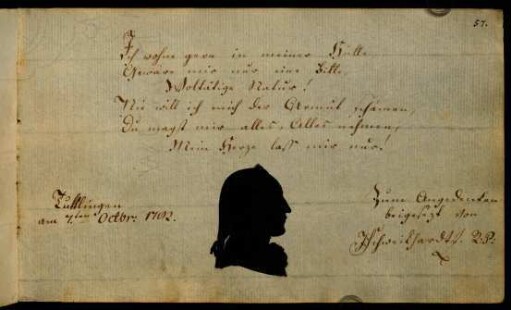 57.
Ich wohne gern in meiner Hütte
Gewäre mir nur eine Bitte,
Woltätige Natur!
Nie will ich mich der Armut schämen,
Du magst mir alles, Alles nehmen,
Mein Herze lass mir nur!
Tuttlingen
am 7.ten Octbr: 1792.
Zum Angedenken
beigesezt von